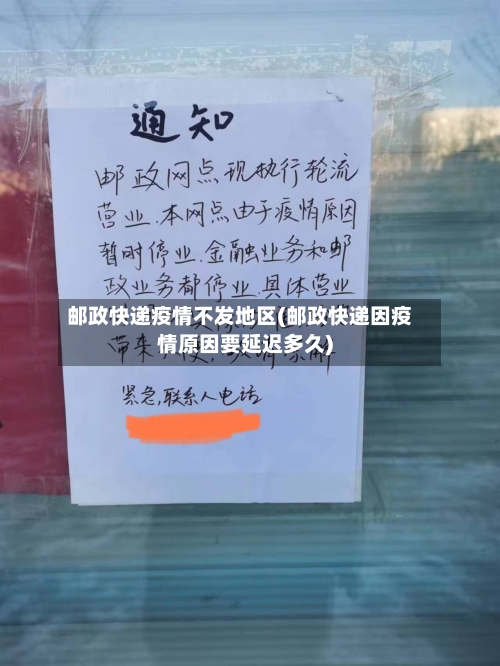 通知
邮政网点现执行轮流
营业.本网点由于疫情原因
暂时停业.金融业务和邮
政业务都停业.具体营业
邮政快递疫情不发地区(邮政快递因疫
情原因要延迟多久)
带来
紧急,联系人电话